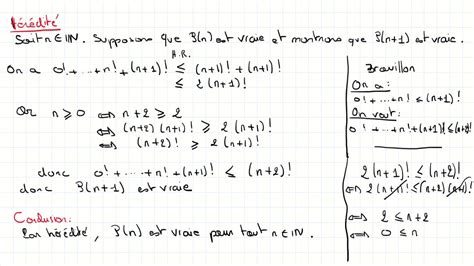 Hérédité
Soit n ∈ ℕ. Supposons que P(n) est vraie et montrons que P(n+1) est vraie.
H.R.
On a 0! + ... + n! + (n+1)! ≤ (n+1)! + (n+1)!
≤ 2 (n+1)!
Or n ≥ 0 ⟺ n+2 ≥ 2
⟺ (n+2) (n+1)! ≥ 2 (n+1)!
⟺ (n+2)! ≥ 2 (n+1)!
donc 0! + ... + n! + (n+1)! ≤ (n+2)!
donc P(n+1) est vraie
Conclusion:
Par hérédité, P(n) est vraie pour tout n ∈ ℕ.
Brouillon
On a:
0! + ... + n! ≤ (n+1)!
On veut:
0! + ... + n! + (n+1)! ≤ (n+2)!
2 (n+1)! ≤ (n+2)!
⟺ 2 (n+1)! ≤ (n+2)(n+1)!
⟺ 2 ≤ n+2
⟺ 0 ≤ n